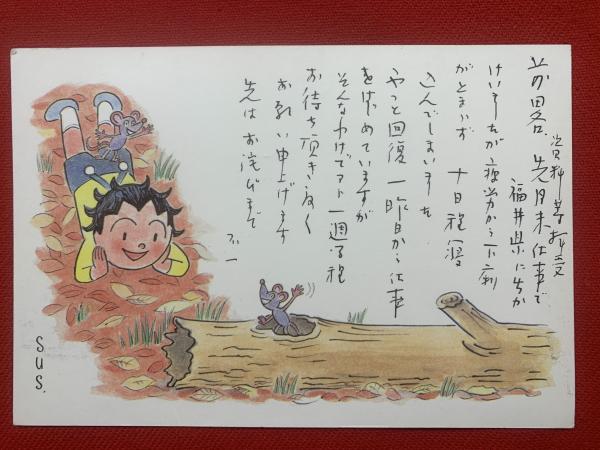 前略、先月末仕事で
資料等拝受
福井県に出か
けいましたが疲労から下痢
がとまらず 十日程寝
込んでしまいまして
やっと回復 一昨日から仕事
をはじめていますが
そんなわけでアト一週間程
お待ち頂き度く
お願い申上げます
先は お詫びまで
不一
sus.